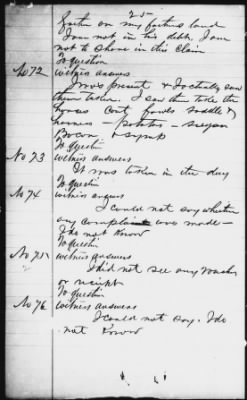 25-
father on my father's land
I am not in his debt, I am
not to share in this claim
To question
No 72 witness answers
I was present & I actually saw
them taken. I saw them take the
horses Corn fowls saddle &
harness - potatoes - sugar
Bacon & syrup
To Questi
No 73 witness answers
It was taken in the day
To Questi
No 74 witness answers
I could not say whether
any complaint was made -
I do not Know
To Questi
No 75 witness answers
I did not see any voucher
or receipt
To questi
No 76 witness answers
I could not say. I do
not Know